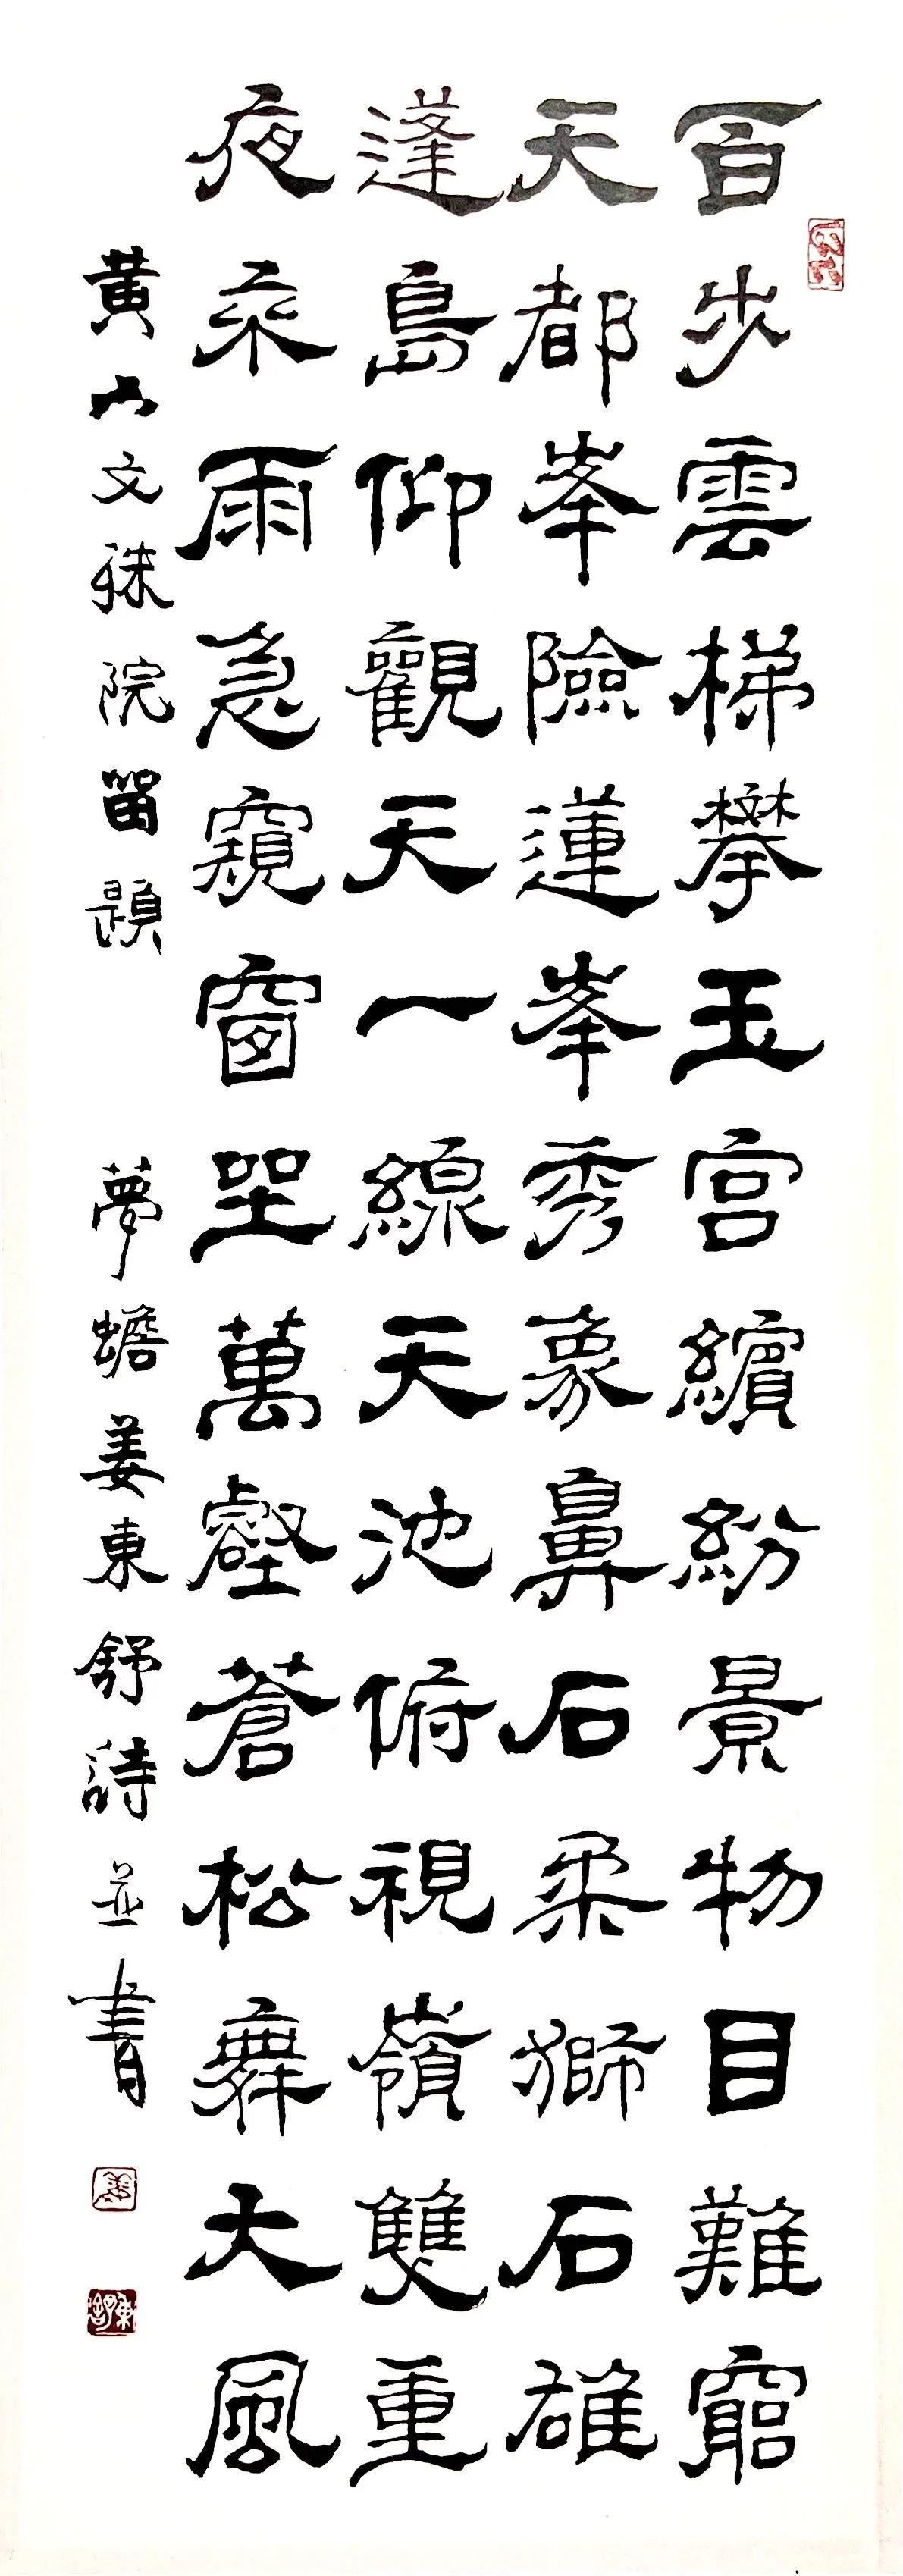 百步雲梯攀玉宮繽紛景物目難窮
天都峯險蓮峯秀象鼻石柔獅石雄
蓬島仰觀天一線天池俯視嶺雙重
夜來雨急窺窗坐萬壑蒼松舞大風
黄山文殊院留題 夢蟾姜東舒詩並書
姜